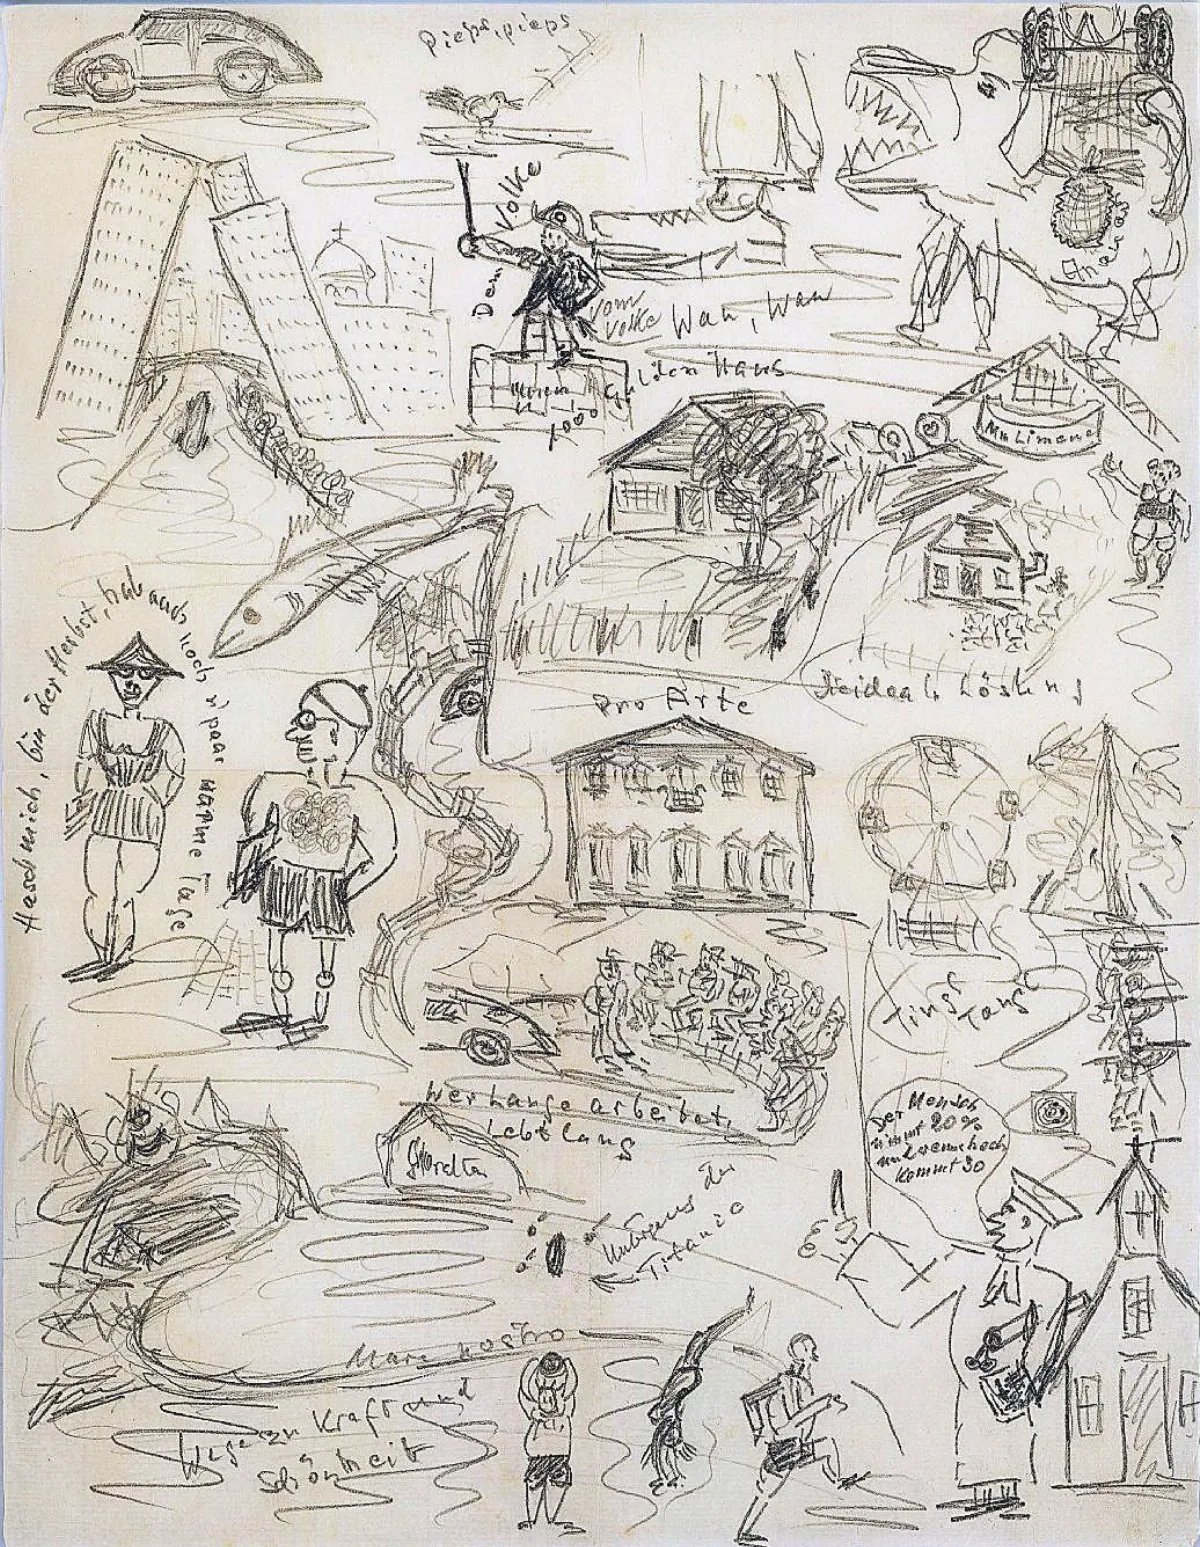 Pieps, pieps
Dem Volke
vom
Volke
Wau, Wau
Ananas
Gulden Haus
1000
Mr Limane
Pro Arte
Heideal Lösung
Hasch mich, bin der Herbst, hab auch noch n' paar warme Tage
Tingl
Tangl
Wer lange arbeitet,
Lebt lang
Der Mensch
nimmt 20%
und wenn hoch
kommt 30
Untergang der
Titanic
Mare nostro
Wege zu Kraft und
Schönheit